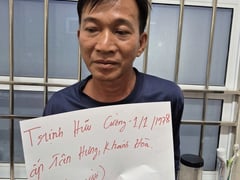 Trinh Hữu Cường - 1/1/1978
ấp Tân Hưng, Khánh Hòa